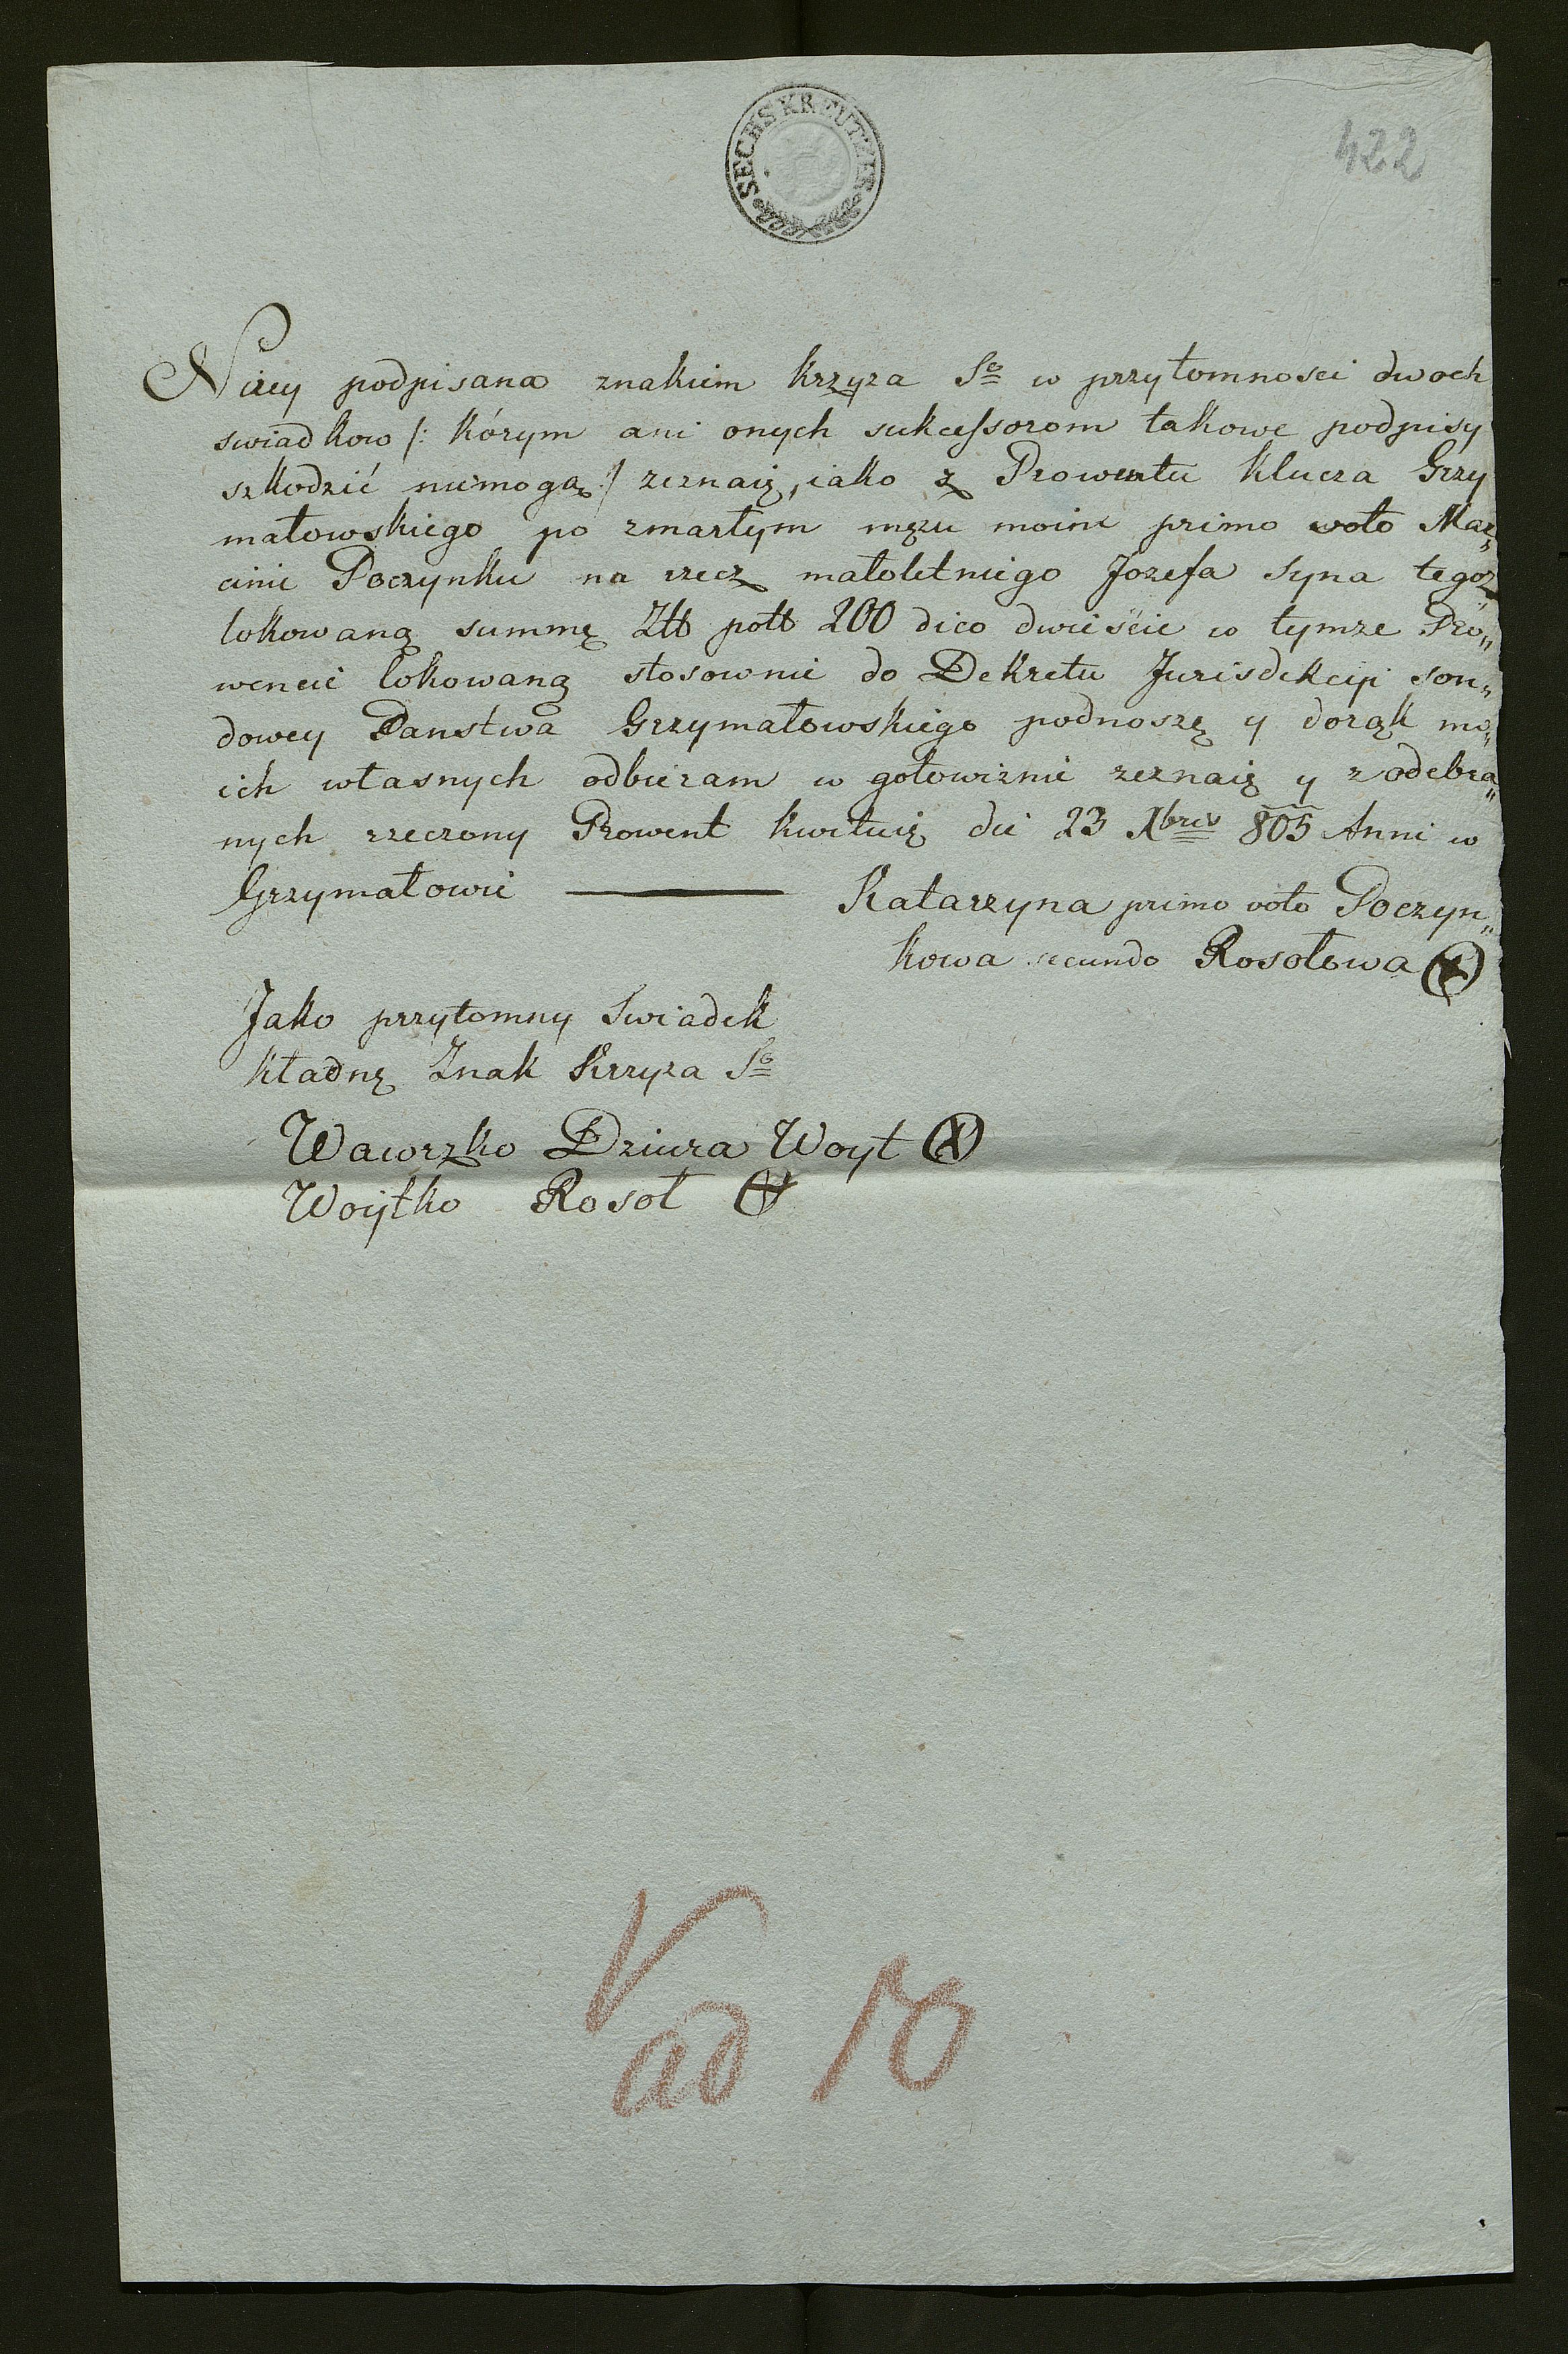 SECHS KREUTZER
422
Nizey podpisana znakiem krzyza Sgo w przytomnosci dwoch
swiadkow /: kórym ani onych sukcessorom takowe podpisy
szkodzić niemogą :/ zeznaię, iako z Prowentu klucza Grzy
małowskiego po zmarłym męzu moim primo voto Mar„
cinie Poczynku na rzecz małoletniego Jozefa syna tegoz
lokowaną summę Złł poll 200 dico dwieście w tymze Pro„
wencie lokowaną stosownie do Dekretu Jurisdekcyi son„
dowey Panstwa Grzymałowskiego podnoszę y dorąk mo„
ich własnych odbieram w gotowiznie zeznaię y z odebra„
nych rzeczony Prowent kwituię die 23 Xbris 805 Anni w
Grzymałowie
Katarzyna primo voto Poczyn„
kowa secundo Rosołowa (X)
Jako przytomny Swiadek
kładnę Znak Krzyza Sgo
Wawrzko Dziura Woyt (X)
Woytko Rosoł (X)
V
ad 10